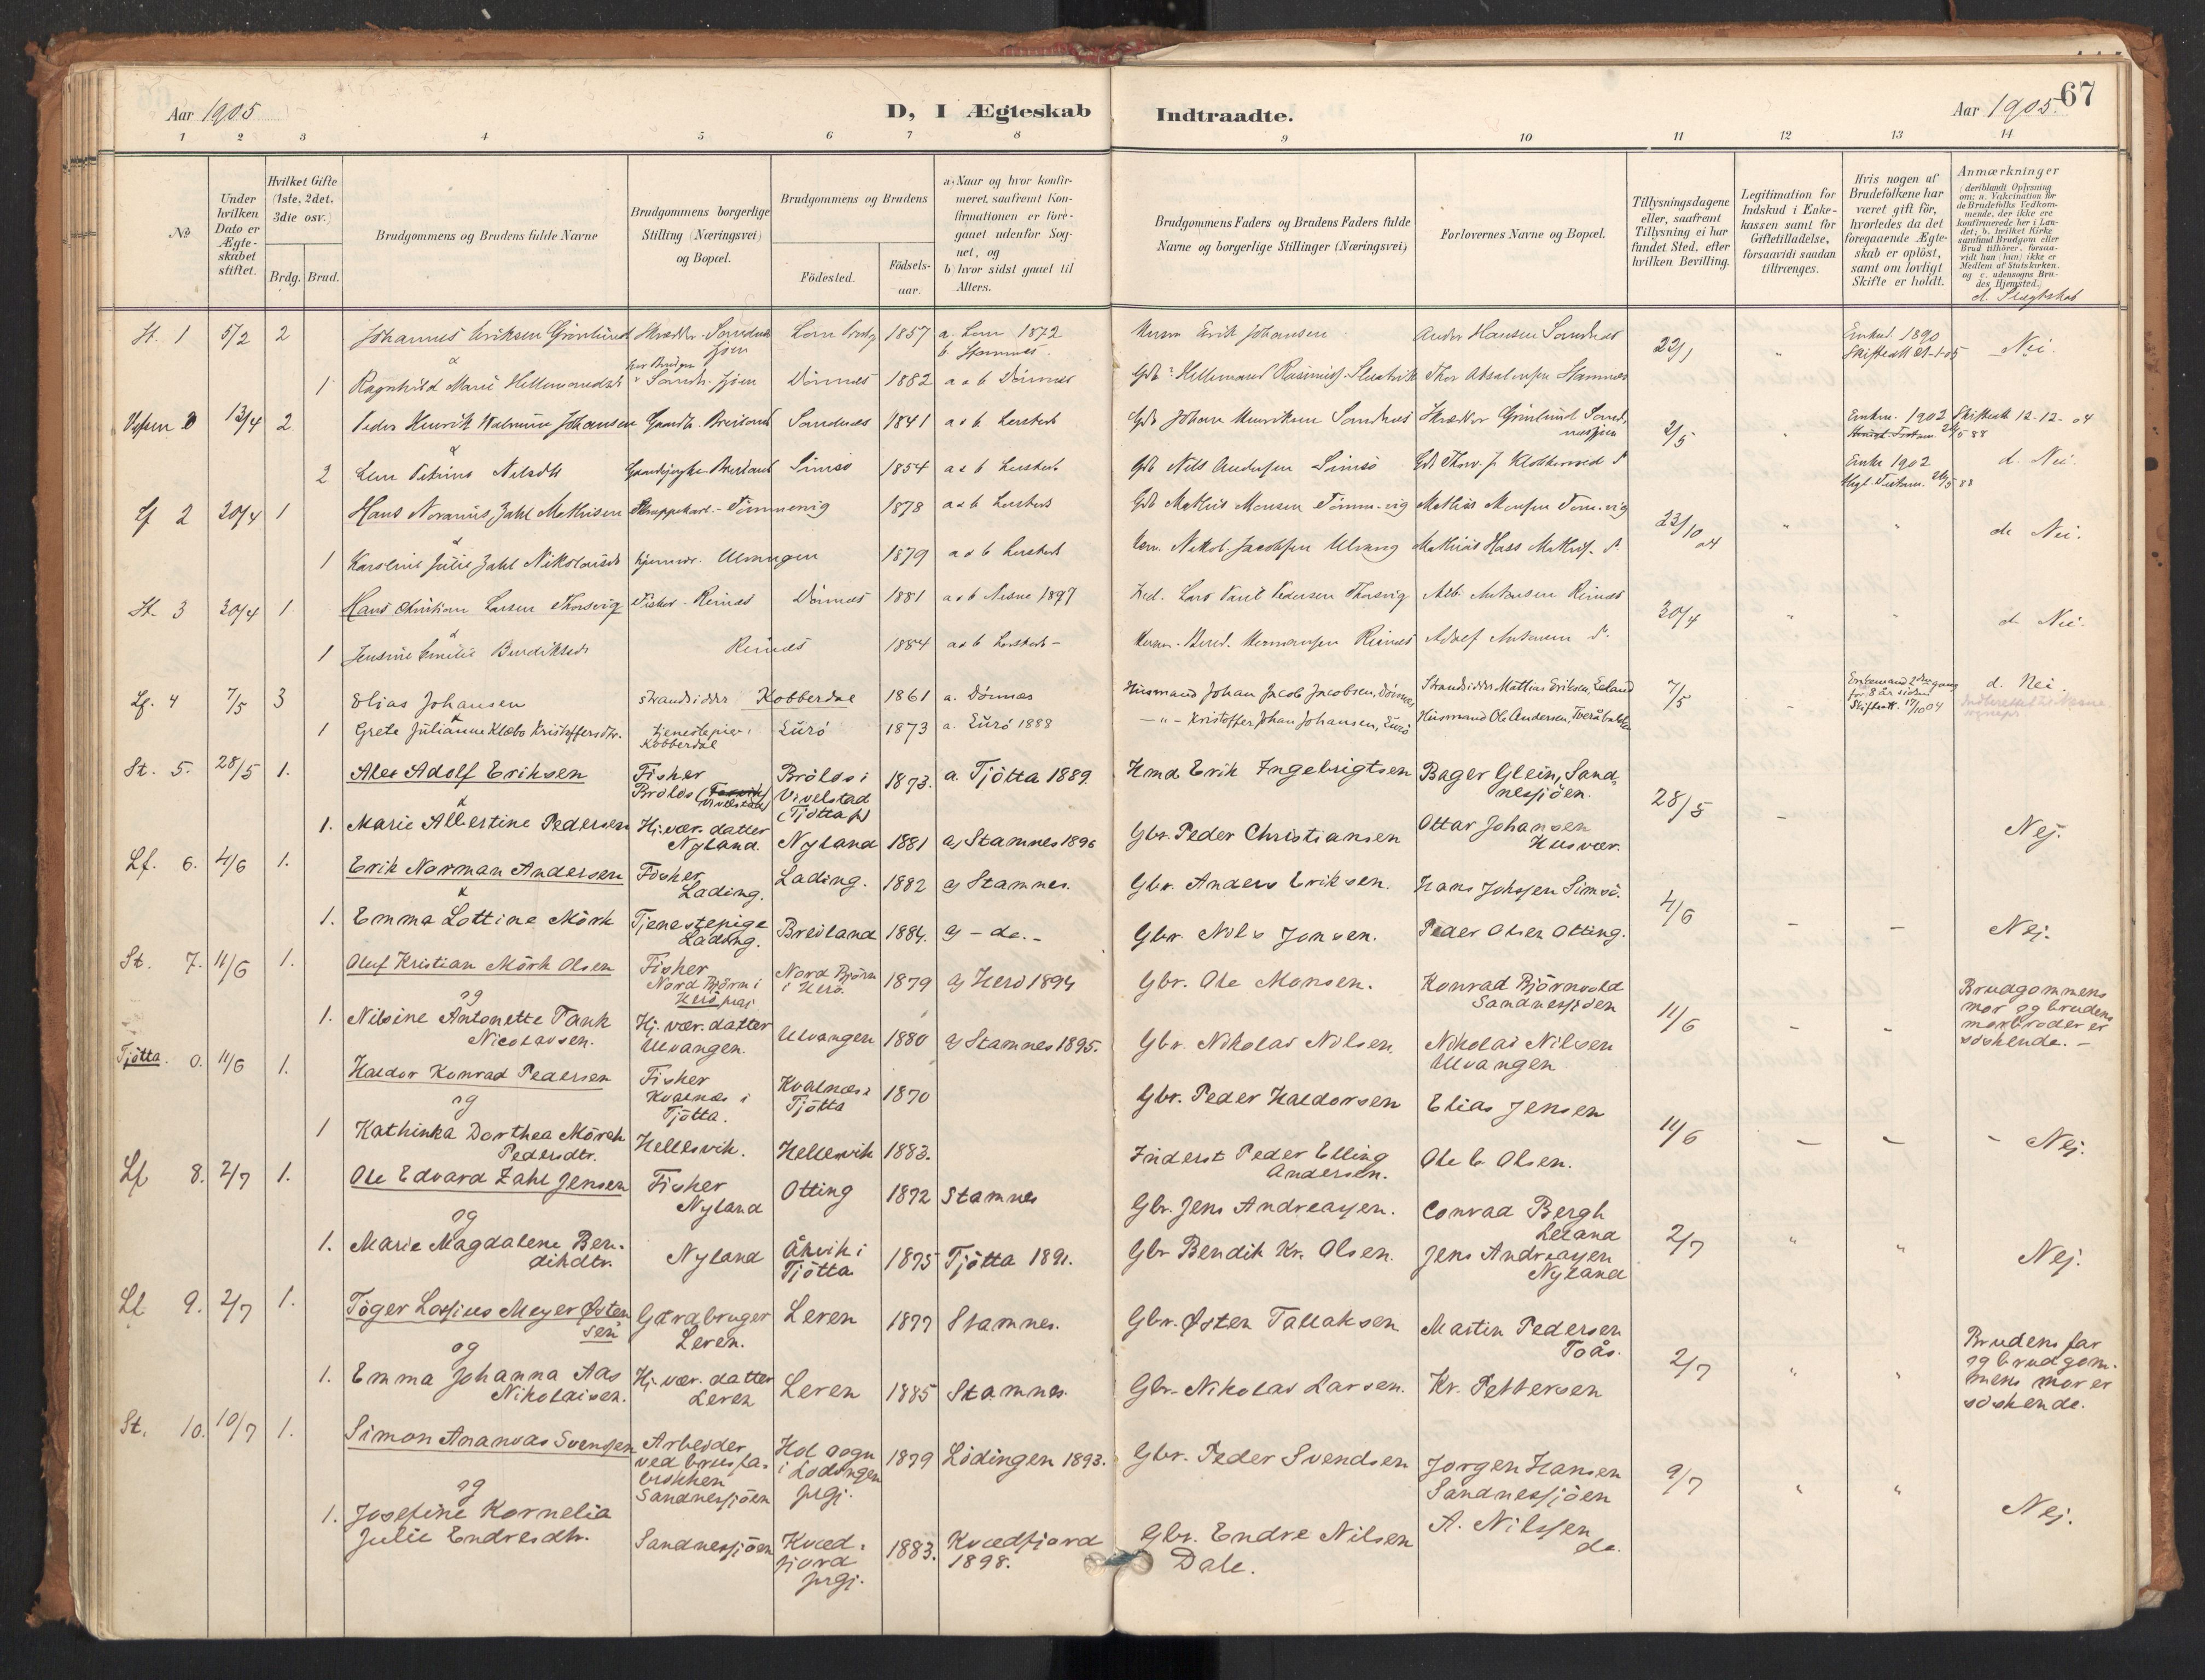 67
Aar 1905
D, I Ægteskab
Indtraadte.
Aar 1905.
1 2 3 4 5 6 7 8 9 10 11 12 13 14
No
Under hvilken Dato er Ægteskabet stiftet.
Hvilket Gifte (1ste, 2det, 3die osv.)
Brdg. Brud.
Brudgommens og Brudens fulde Navne
Brudgommens borgerlige Stilling (Næringsvei) og Bopæl.
Brudgommens og Brudens
Födested.
Födselsaar.
a) Naar og hvor konfirmeret, saafremt Konfirmationen er foregaaet udenfor Sognet, og
b) hvor sidst gaaet til Alters.
Brudgommens Faders og Brudens Faders fulde Navne og borgerlige Stillinger (Næringsvei)
Forlovernes Navne og Bopæl.
Tillysningsdagene eller, saafremt Tillysning ei har fundet Sted, efter hvilken Bevilling.
Legitimation for Indskud i Enkekassen samt for Giftetilladelse, forsaavidt saadan tiltrænges.
Hvis nogen af Brudefolkene har været gift för, hvorledes da det foregaaende Ægteskab er oplöst, samt om lovligt Skifte er holdt.
Anmærkninger
(deriblandt Oplysning om: a. Vakcination for de Brudefolks Vedkommende, der ikke ere konfirmerede her i Landet; b. hvilket Kirkesamfund Brudgom eller Brud tilhörer, forsaavidt han (hun) ikke er Medlem af Statskirken, og c. udensogns Brudes Hjemsted.)
d. Slægtskab
St. 1 5/2 2 Johannes Eriksen Grönlund 1857 a. Lom 1872 Erik Johansen Anders Hansen Sandnes 22/1 " Enkem. 1890 Nei.
&
1 Ragnhild Marie Dönnes 1882 a & b Dönnes
13/4 2 Peder Henrik Johansen Sandnes 1841 a & b Gb Johan Henriksen Sandnes Skrædder Grönlund Sandnessjöen 2/5 " Enkem. 1902 Skifteatt 12-12-04
&
2 Nilsdtr Simsö 1854 a & b Gb Nils Andersen Simsö Enke 1902 d. Nei.
Lf 2 20/4 1 Hans Zahl Mathisen 1878 a & b Gb Mathis Monsen 23/10 04 " " d. Nei.
&
1 Karoline Julie Zahl Nikolaisdr Ulvangen 1879 a & b Nikol. Jacobsen Ulvang
St. 3 30/4 1 Hans Christian Larsen Thorsvig Fisher - Reines Dönnes 1881 a & b Nesne 1897 Alb. Antonsen Reines 30/4 " " d. Nei.
&
1 Jensine Emilie Bendiksdr Reines 1884 a & b Adolf Antonsen
Lf. 4 7/5 3 Elias Johansen strandsidder Kobberdal 1861 a. Dönnes Husmand Johan Jacob Jacobsen, Dönnes Strandsidder Mathias Eriksen, Leland 7/5 Enkemand 2den gang for 8 år siden Skifteatt. 17/10 04 d. Nei
&
1 Grete Julianne Klæbo Kristoffersdtr. tjenestepige, Kobberdal Lurö 1873 a. Lurö 1888 - " - Kristoffer Johan Johansen, Lurö Husmand Ole Andersen,
St. 5. 28/5 1. Alex Adolf Eriksen Fisher Brölös (Vivelstad) Brölös i Vivelstad (Tjötta p) 1873. a. Tjötta 1889. Hmd Erik Ingebrigtsen Bager Glein, Sandnessjöen. 28/5 -
&
1. Marie Albertine Pedersen Hj. vær. datter Nyland. Nyland 1881 a) Stamnes 1896 Gbr. Peder Christiansen Ottar Johansen Husvær. Nej.
Lf. 6. 4/6 1. Erik Norman Andersen Fisher Lading. Lading. 1882 a) Stamnes. Gbr. Anders Eriksen. Hans Johsjen Simsö. 4/6 - - Nej.
&
1. Emma Lottine Mörk Tjenestepige Lading. Breiland 1884. a) - do. - Gbr. Nils Jonsen. Peder Olsen Otting.
St. 7. 11/6 1. Oluf Kristian Mörk Olsen Fisher Nord Björn i Herö prgj Nord Björn i Herö. 1879 a) Herö 1894 Gbr. Ole Monsen. Konrad Björnvold Sandnessjöen 11/6 - - Brudgommens mor og brudens morbroder er söskende. -
og
1. Nilsine Antonette Tank Nicolaisen. Hj. vær. datter Ulvangen. Ulvangen 1880 a) Stamnes 1895. Gbr. Nikolai Nilsen. Nikolai Nilsen Ulvangen
Tjötta. 0. 11/6 1. Haldor Konrad Pedersen Fisher Kvalnes i Tjötta. Kvalnes i Tjötta 1870 Gbr. Peder Haldorsen Elias Jensen 11/6 - - - Nej.
og
1 Kathinka Dorthea Mörch Pedersdtr. Hellesvik. Hellesvik 1883. Inderst Peder Elling Andersen. Ole C. Olsen.
Lf 8. 2/7 1. Ole Edvard Zahl Jensen Fisher Nyland Otting 1872 Stamnes Gbr. Jens Andreassen. Conrad Bergh Leland 2/7 " " Nej.
og
1. Marie Magdalene Bendikdtr. Nyland Åkvik i Tjötta 1875 Tjötta 1891. Gbr Bendik Kr. Olsen. Jens Andreassen Nyland
Lf. 9. 2/7 1. Töger Lossius Meyer Østensen Gårdbruger Leren. Leren 1877 Stamnes. Gbr. Østen Tallaksen Martin Pedersen Toås. 2/7 " " Brudens far og brudgommens mor er söskende.
og
1. Emma Johanna Aas Nikolaisen. Hj. vær. datter Leren Leren 1885 Stamnes. Gbr. Nikolai Larsen. Kr. Pettersen
St. 10. 10/7 1. Simon Ananias Svendsen Arbeider ved brusfabrikken Sandnessjöen Hol sogn i Lödingen prgj. 1879 Lödingen 1893. Gbr. Peder Svendsen Jørgen Hansen Sandnessjöen 9/7 " " Nej.
og
1. Josefine Kornelia Julie Endresdtr. Sandnessjöen Kvædfjord prgj. 1883. Kvædfjord 1898. Gbr. Endre Nilsen Dale. A. Nilssen do.